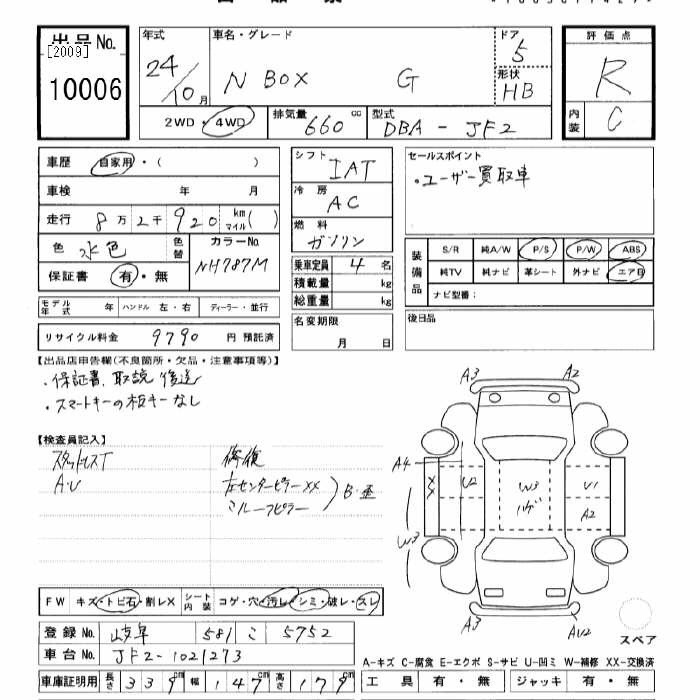 出品No.
[2009]
10006
年式
24/10月
車名・グレード
N BOX G
ドア
5
形状
HB
評価点
R
内装
C
2WD・4WD
排気量 660 cc
型式 DBA-JF2
車歴 自家用・( )
車検 年 月
走行 8万2千920 km マイル( )
色 水色
色替
カラーNo.
NH787M
保証書 有・無
シフト
IAT
冷房
AC
燃料
ガソリン
乗車定員 4名
積載量 kg
総重量 kg
セールスポイント
・ユーザー買取車
装備品
S/R 純A/W P/S P/W ABS
純TV 純ナビ 革シート 外ナビ エアB
ナビ型番:
モデル年式 年 ハンドル 左・右 ディーラー・並行
リサイクル料金 9790 円 預託済
名変期限
月 日
後日品
【出品店申告欄(不良箇所・欠品・注意事項等)】
・保証書、取説 後送
・スマートキーの板キーなし
【検査員記入】
スタッドレスT
A・U
修復
左センターピラーXX
ミルーフピラー
B・歪
A3 A2
A4
XX
U2
W3
ハゲ
U1
A2
W3
A3
AU2
スペア
FW キズ・トビ石・割レX
シート内装 コゲ・穴・汚レ・シミ・破レ・スレ
登録No. 岐阜 581 こ 5752
車台No. JF2-1021273
車庫証明用 長さ 339cm 幅 147cm 高さ 179cm
A-キズ C-腐食 E-エクボ S-サビ U-凹ミ W-補修 XX-交換済
工具 有・無 ジャッキ 有・無